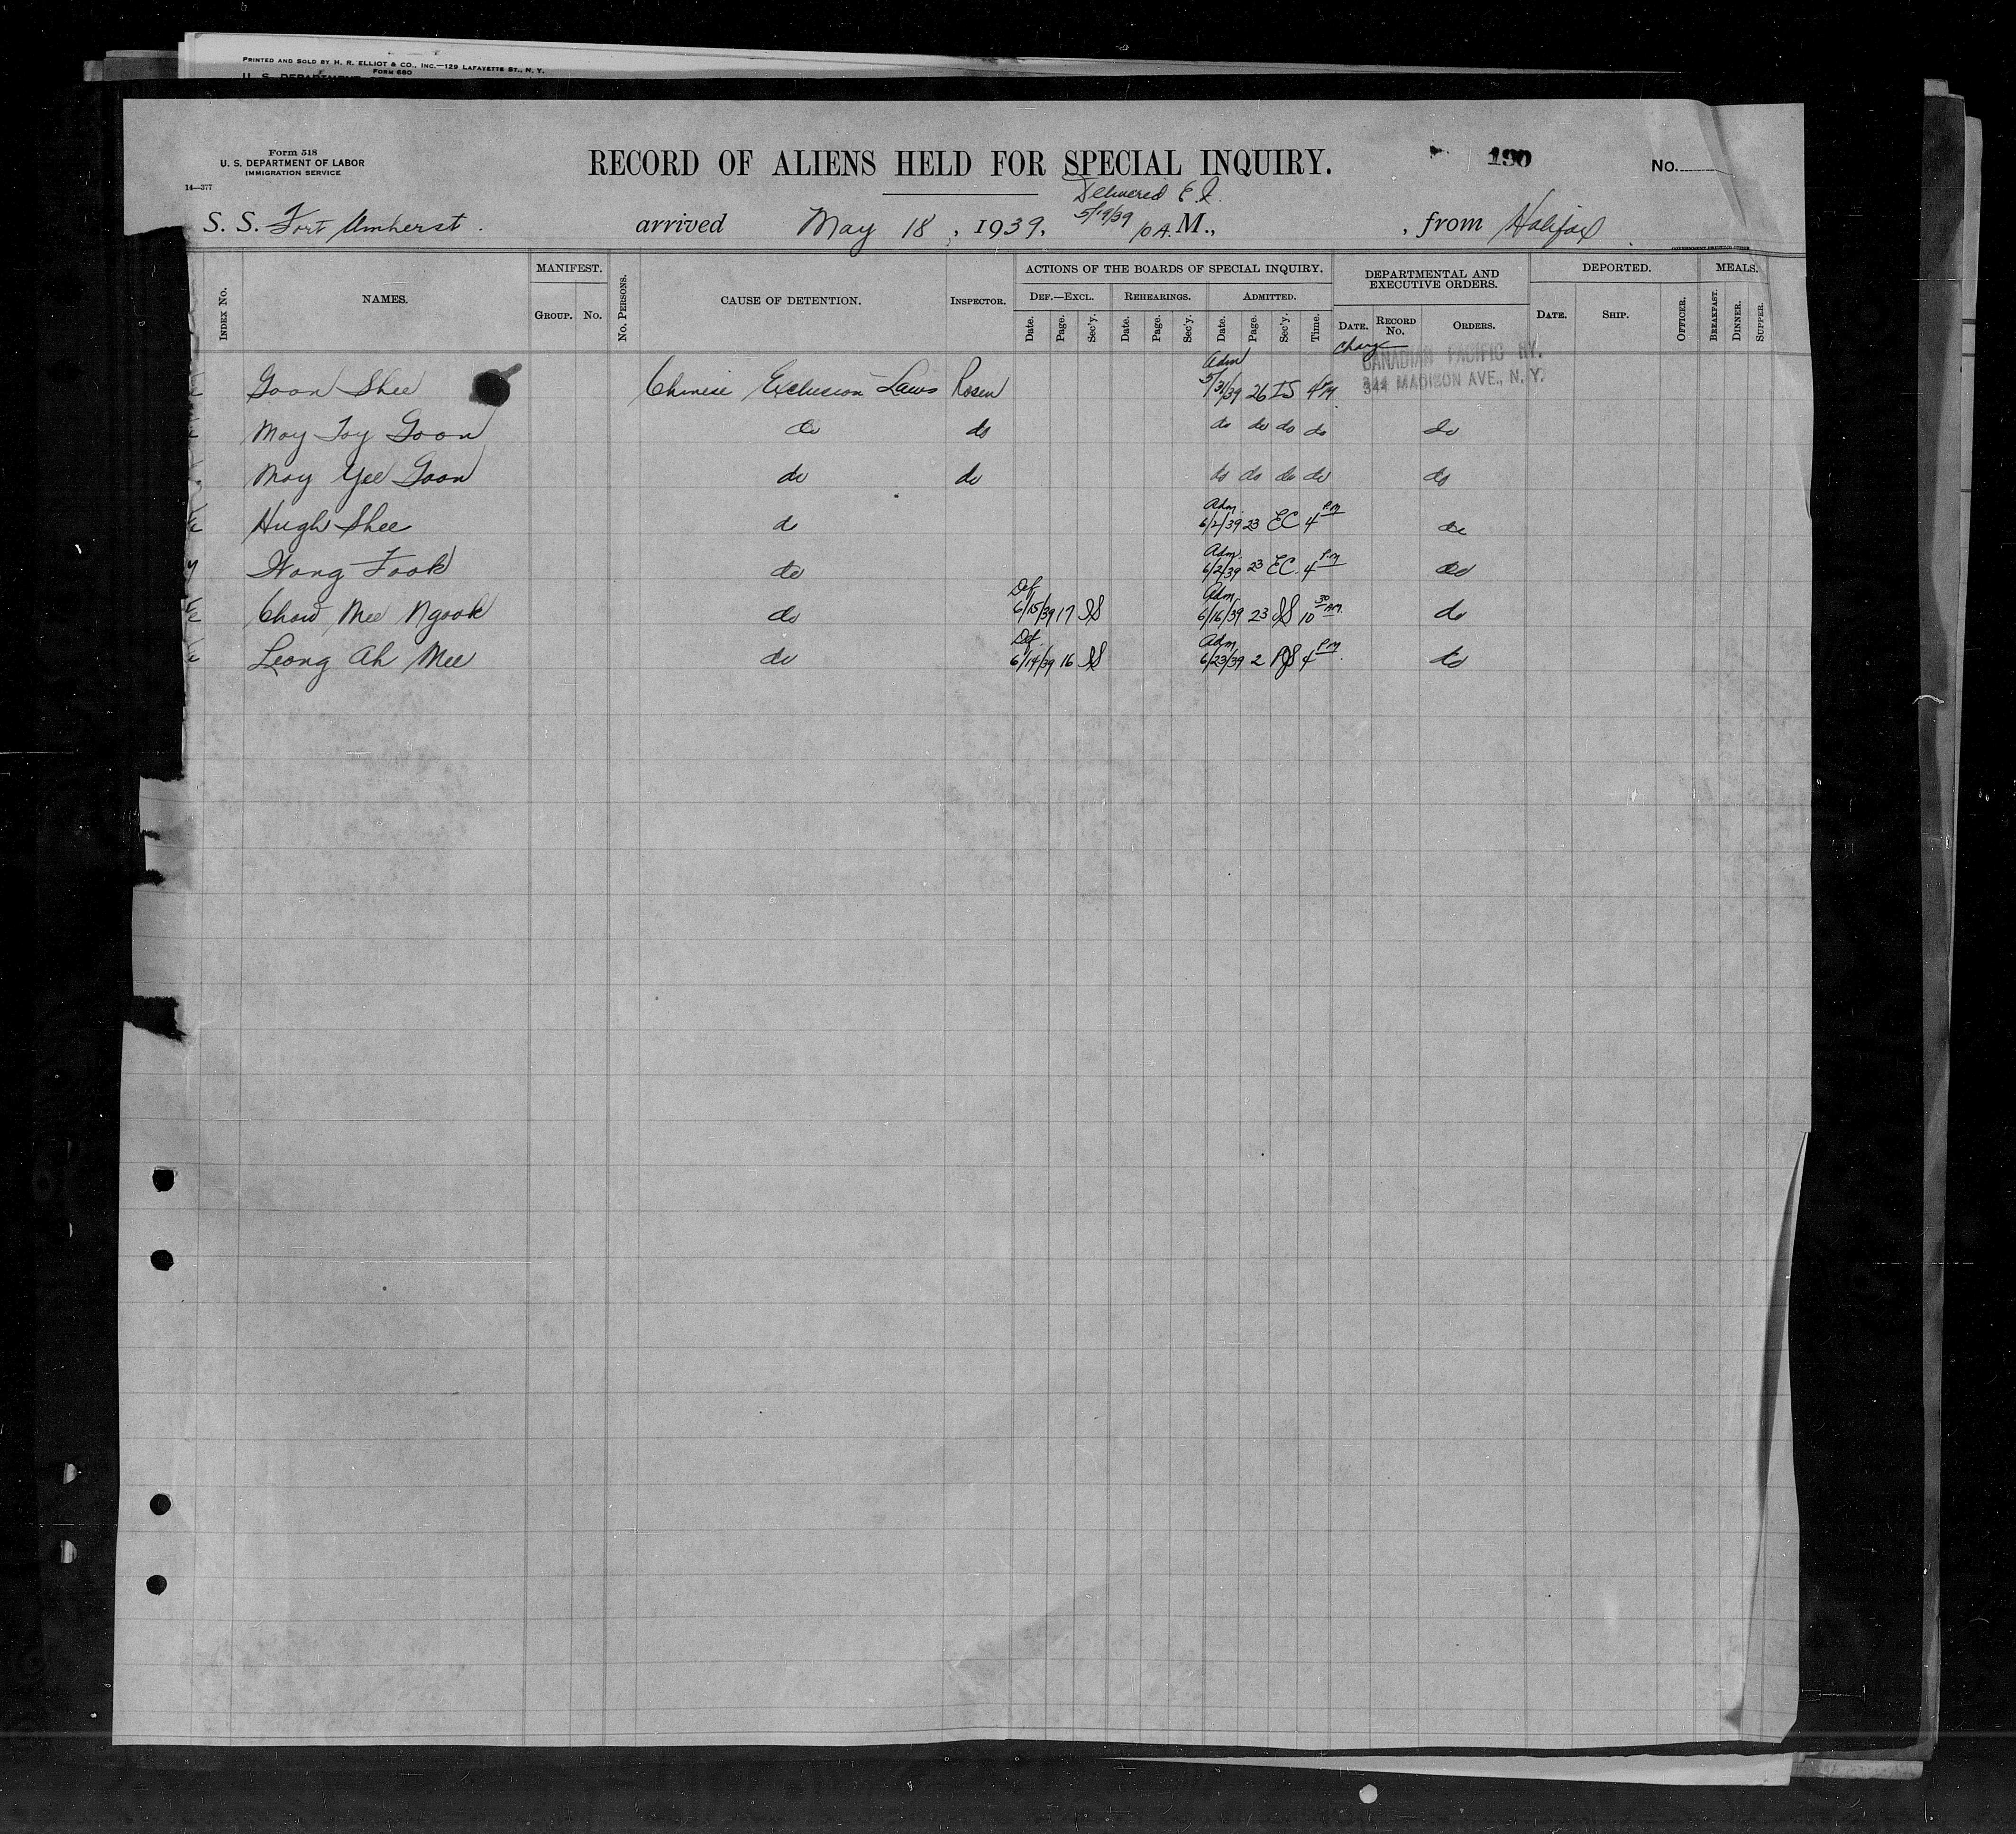 PRINTED AND SOLD BY H. R. ELLIOT & CO., INC.—129 LAFAYETTE ST., N. Y.
FORM 680
U. S. DEPARTMENT
Form 518
U. S. DEPARTMENT OF LABOR
IMMIGRATION SERVICE
14—377
RECORD OF ALIENS HELD FOR SPECIAL INQUIRY.
190
No.
Delivered E. I.
5/19/39
S. S. Fort Amherst. arrived May 18, 1939, 10 A. M., , from Halifax
INDEX No. NAMES. MANIFEST. GROUP. No. No. PERSONS. CAUSE OF DETENTION. INSPECTOR. ACTIONS OF THE BOARDS OF SPECIAL INQUIRY. DEF.—EXCL. Date. Page. Sec'y. REHEARINGS. Date. Page. Sec'y. ADMITTED. Date. Page. Sec'y. Time. DEPARTMENTAL AND EXECUTIVE ORDERS. DATE. RECORD No. ORDERS. DEPORTED. DATE. SHIP. OFFICER. MEALS. BREAKFAST. DINNER. SUPPER.
Charge CANADIAN PACIFIC RY.
344 MADISON AVE., N. Y.
Goon Shee Chinese Exclusion Laws Rosen Adm 5/31/39 26 IS 4 PM
May Toy Goon do do do do do do do
May Yee Goon do do do do do do do
Hugh Shee do Adm. 6/2/39 23 EC 4 PM do
Wong Fook do Adm. 6/2/39 23 EC. 4 P.M do
Chow Mee Ngook do Def 6/15/39 17 IS Adm. 6/16/39 23 IS 10 30 AM. do
Leong Ah Mee do Def. 6/14/39 16 IS Adm 6/23/39 2 4 PM do